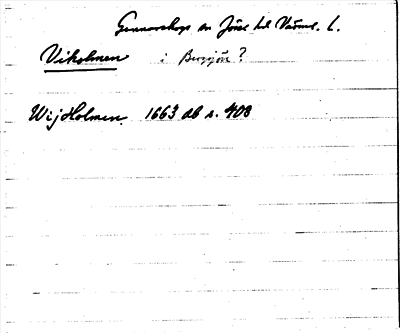 Gunnarskogs sn Jösse hd Värml. L.
Vikolmen i Bergsjön?
WijHolmen 1663 ab s. 408